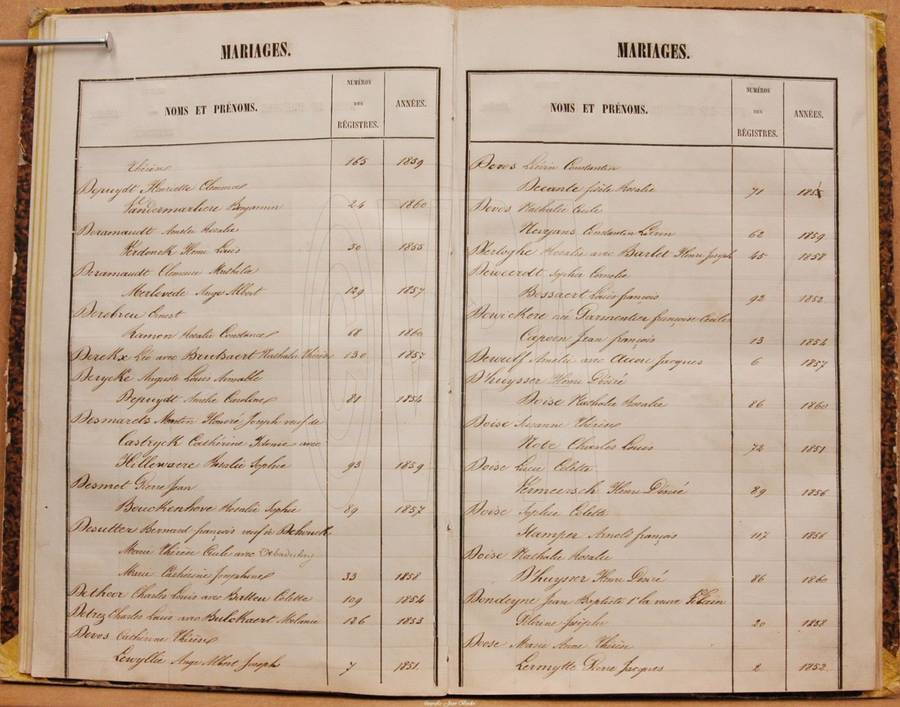 MARIAGES.
NOMS ET PRÉNOMS. NUMÉROS DES RÉGISTRES. ANNÉES.
Thérèse 165 1859
Depuydt Henriette Clemence
Vandermarliere Benjamin 24 1860
Deramaudt Amelie Rosalie
Verdonck Henri Louis 30 1855
Deramaudt Clemence Mathilde
Merlevede Ange Albert 129 1857
Derebreu Ernest
Ramon Rosalie Constance 68 1860
Derekx Léo avec Boutsaert Nathalie Thérèse 130 1857
Derycke Auguste Louis Aimable
Depuydt Amelie Caroline 81 1854
Desmarets Martin Honoré Joseph veuf de
Castryck Cathérine avec
Hillewaere Rosalie Sophie 93 1859
Desmet Pierre Jean
Bouckenhove Rosalie Sophie 89 1857
Desutter Bernard françois veuf de
Marie Thérèse avec
Marie Cathérine Josephine 33 1858
Dethoor Charles Louis avec Batteu Colette 109 1854
Detrez Charles Louis avec Bulckaert Melanie 126 1853
Devos Cathérine Thérèse
Lewyllie Ange Albert Joseph 7 1851
MARIAGES.
NOMS ET PRÉNOMS. NUMÉROS DES RÉGISTRES. ANNÉES.
Devos Liévin Constantin
Decante Rosalie 71
Devos Nathalie
Constantin 62 1859
Rosalie avec Bartel Henri Joseph 45 1858
Deweerdt Sophie Cornelie
Bossaert Louis françois 92 1852
Dewickere née Parmentier françoise
Capoen Jean françois 13 1854
Dewulf Amelie avec Jacques 6 1857
D'huysser Henri Désiré
Doise Nathalie Rosalie 86 1860
Doise Suzanne Thérèse
Note Charles Louis 72 1851
Doise Lucie Colette
Vermeersch Henri Désiré 89 1856
Doise Sophie Colette
Stamper Arnold françois 117 1856
Doise Nathalie Rosalie
D'huysser Henri Désiré 86 1860
Dondeyne Jean Baptiste
20 1858
Dose Marie Anne Thérèse
Lermytte Pierre Jacques 2 1852